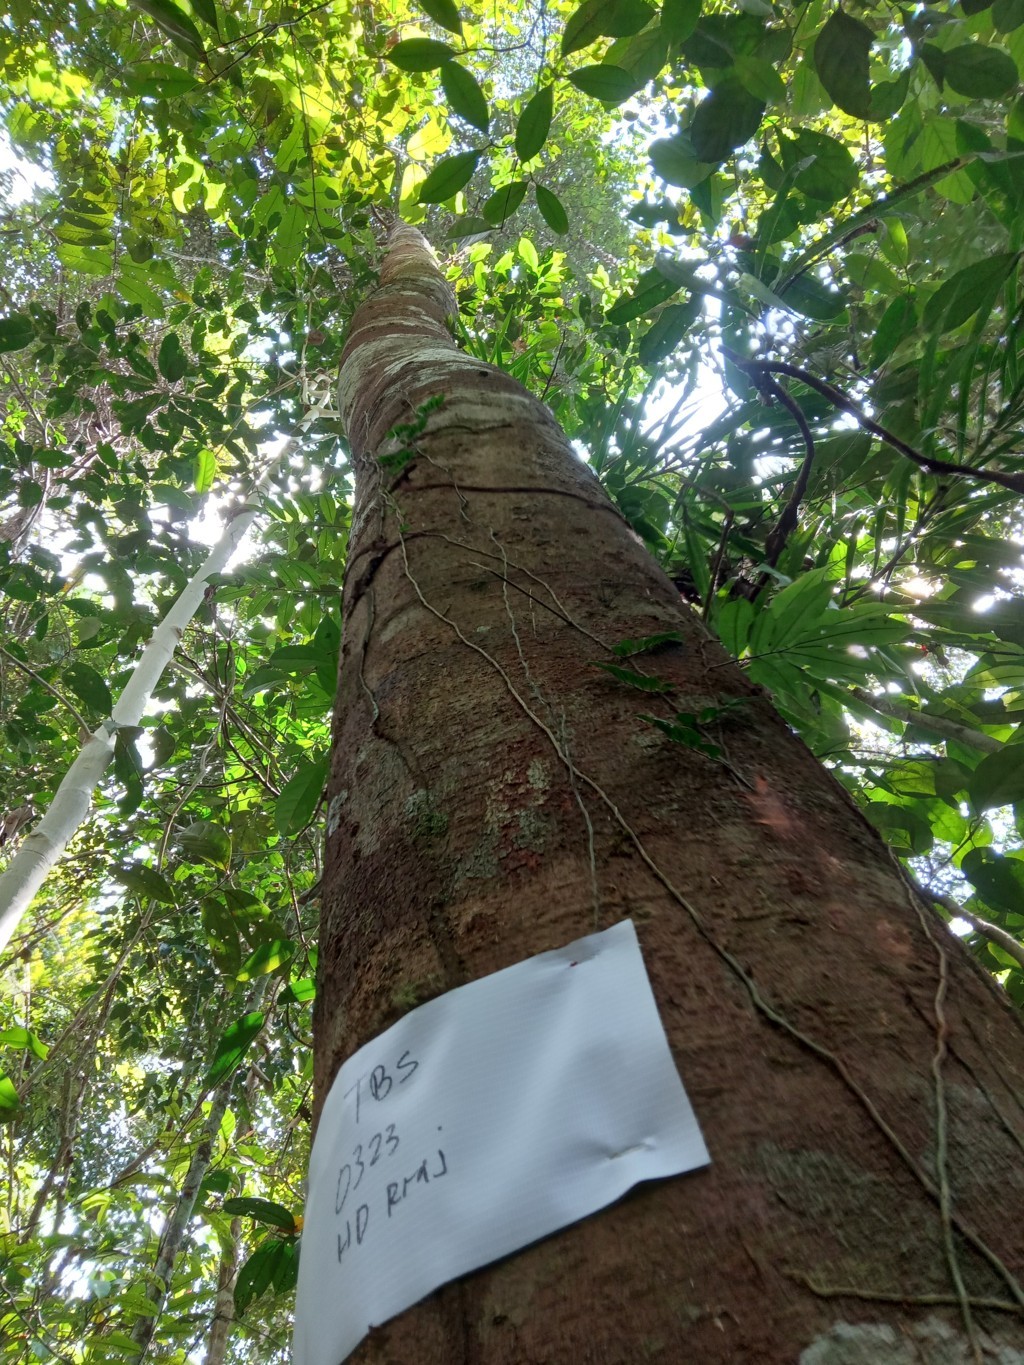 TBS
0323
HD RMJ